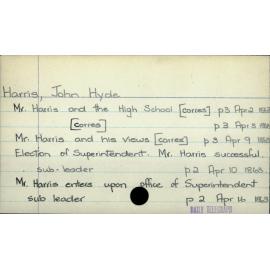 Harris, John Hyde
Mr. Harris and the High School [corres] p3 Apr 2 1863
[corres] p 3 Apr 3 1863
Mr. Harris and his views [corres] p 3 Apr 9 1863
Election of Superintendent. Mr. Harris successful.
sub-leader p 2 Apr 10 1863.
Mr. Harris enters upon office of Superintendent
sub leader p 2 Apr 16 1863
DAILY TELEGRAPH